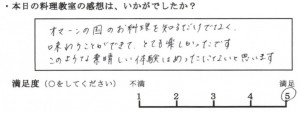 ・本日の料理教室の感想は、いかがでしたか？
オマーンの国のお料理を知るだけでなく、
味わうことができて、とても楽しかったです
このような素晴しい体験ははじめったにないと思います
満足度（○をしてください） 不満 満足
1 2 3 4 5